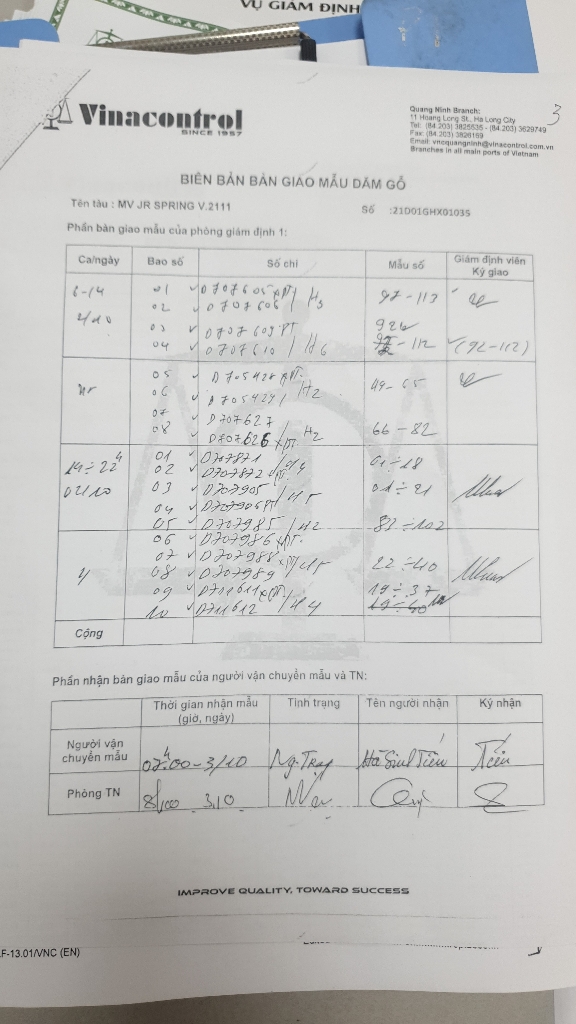 VỤ GIÁM ĐỊNH
3
Vinacontrol
SINCE 1957
Quang Ninh Branch:
11 Hoang Long St., Ha Long City
Tel: (84.203) 3825535 - (84.203) 3629749
Fax: (84.203) 3826169
Email: vncquangninh@vinacontrol.com.vn
Branches in all main ports of Vietnam
BIÊN BẢN BÀN GIAO MẪU DĂM GỖ
Tên tàu : MV JR SPRING V.2111 Số :21D01GHX01035
Phần bàn giao mẫu của phòng giám định 1:
Ca/ngày Bao số Số chì Mẫu số Giám định viên Ký giao
6-14 01 0707605 / H3 97-113
02 0707606
03 0707609
04 0707610 / H6 - 112 (92-112)
05 49-65
06 / H2
07 0707627
08 0707626 / H2 66-82
14÷22h 01 0707871 / H4 01÷18
02/10 02 0707872
03 0707905 / H5 01÷21
04
05 0707985 / H2
06 0707986
07 0707988 / H5 22÷40
08 0707989
09 0711611 19÷37
10 0711612 / H4
Cộng
Phần nhận bàn giao mẫu của người vận chuyển mẫu và TN:
Thời gian nhận mẫu (giờ, ngày) Tình trạng Tên người nhận Ký nhận
Người vận chuyển mẫu 07h00-3/10 Ng.Trạng Hà Sinh Tiến Tiến
Phòng TN 8h00 3/10
IMPROVE QUALITY, TOWARD SUCCESS
F-13.01/VNC (EN)